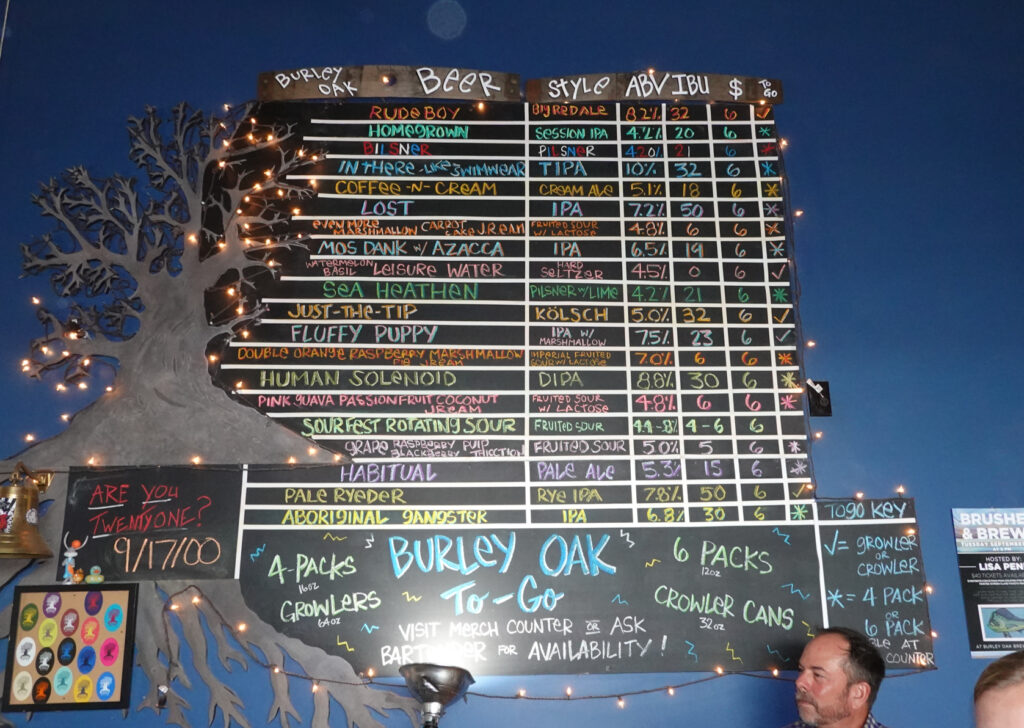 BURLEY OAK BEER STYLE ABV IBU $ TO GO
RUDE BOY BIG RED ALE 8.2% 32 6 ✓
HOMEGROWN SESSION IPA 4.2% 20 6 *
BILSNER PILSNER 4.20% 21 6 *
IN THERE-LIKE SWIMWEAR TIPA 10% 32 6 *
COFFEE-N-CREAM CREAM ALE 5.1% 18 6 *
LOST IPA 7.2% 50 6 *
EVEN MORE MARSHMALLOW CARROT CAKE J.REAM FRUITED SOUR W/ LACTOSE 4.8% 6 6 *
MOS DANK W/ AZACCA IPA 6.5% 19 6 *
WATERMELON BASIL LEISURE WATER HARD SELTZER 4.5% 0 6 ✓
SEA HEATHEN PILSNER W/ LIME 4.2% 21 6 *
JUST-THE-TIP KÖLSCH 5.0% 32 6 ✓
FLUFFY PUPPY IPA W/ MARSHMALLOW 7.5% 23 6 ✓
DOUBLE ORANGE RASPBERRY MARSHMALLOW PIE J.REAM IMPERIAL FRUITED SOUR W/ LACTOSE 7.0% 6 6 *
HUMAN SOLENOID DIPA 8.8% 30 6 *
PINK GUAVA PASSIONFRUIT COCONUT J.REAM FRUITED SOUR W/ LACTOSE 4.8% 6 6 *
SOURFEST ROTATING SOUR FRUITED SOUR 4.4-8% 4-6 6
GRAPE RASPBERRY PULP BLACKBERRY THICCTION FRUITED SOUR 5.0% 5 6 *
HABITUAL PALE ALE 5.3% 15 6 *
PALE RYEDER RYE IPA 7.8% 50 6 ✓
ABORIGINAL GANGSTER IPA 6.8% 30 6 *
ARE YOU
TWENTYONE?
9/17/00
BURLEY OAK
TO-GO
4-PACKS
16oz
GROWLERS
64oz
6 PACKS
12oz
CROWLER CANS
32oz
VISIT MERCH COUNTER OR ASK
BARTENDER FOR AVAILABILITY!
TOGO KEY
✓= GROWLER
OR
CROWLER
*= 4 PACK
OR
6 PACK
AT
COUNTER
BRUSHE
& BREW
TUESDAY SEPTEMBER
HOSTED BY:
LISA PEN
AT BURLEY OAK BREW